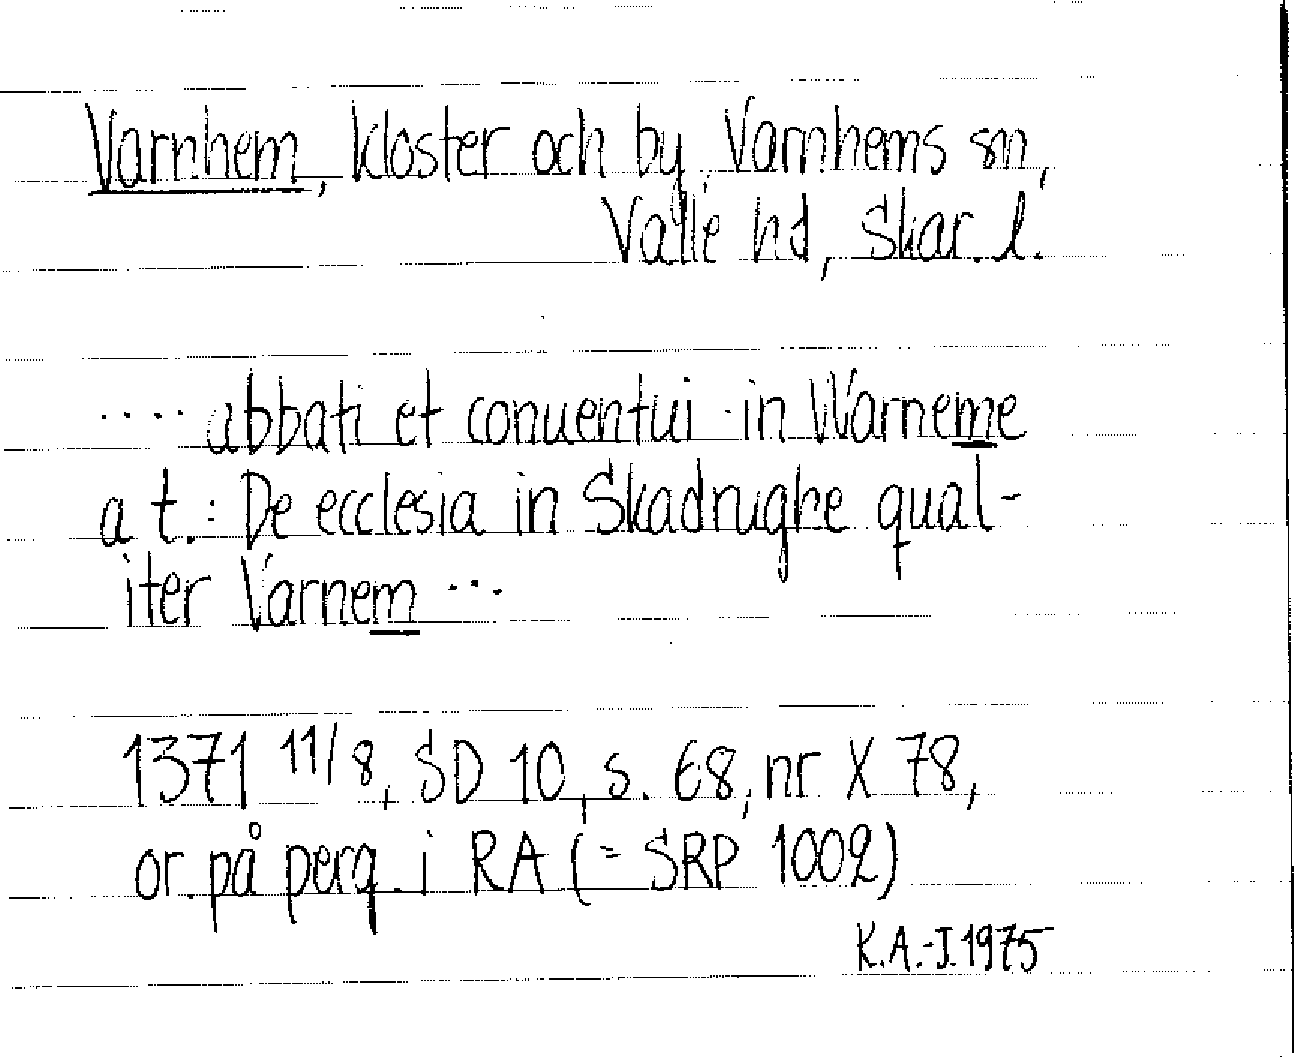 Varnhem, kloster och by, Varnhems sn,
Valle hd, Skar. l.
.... abbati et conuentui in Warneme
a t.: De ecclesia in Skadrughe qual-
iter Varnem ...
1371 11/8, SD 10, s. 68, nr X 78,
or. på perg. i RA (= SRP 1002)
K.A.-I. 1975